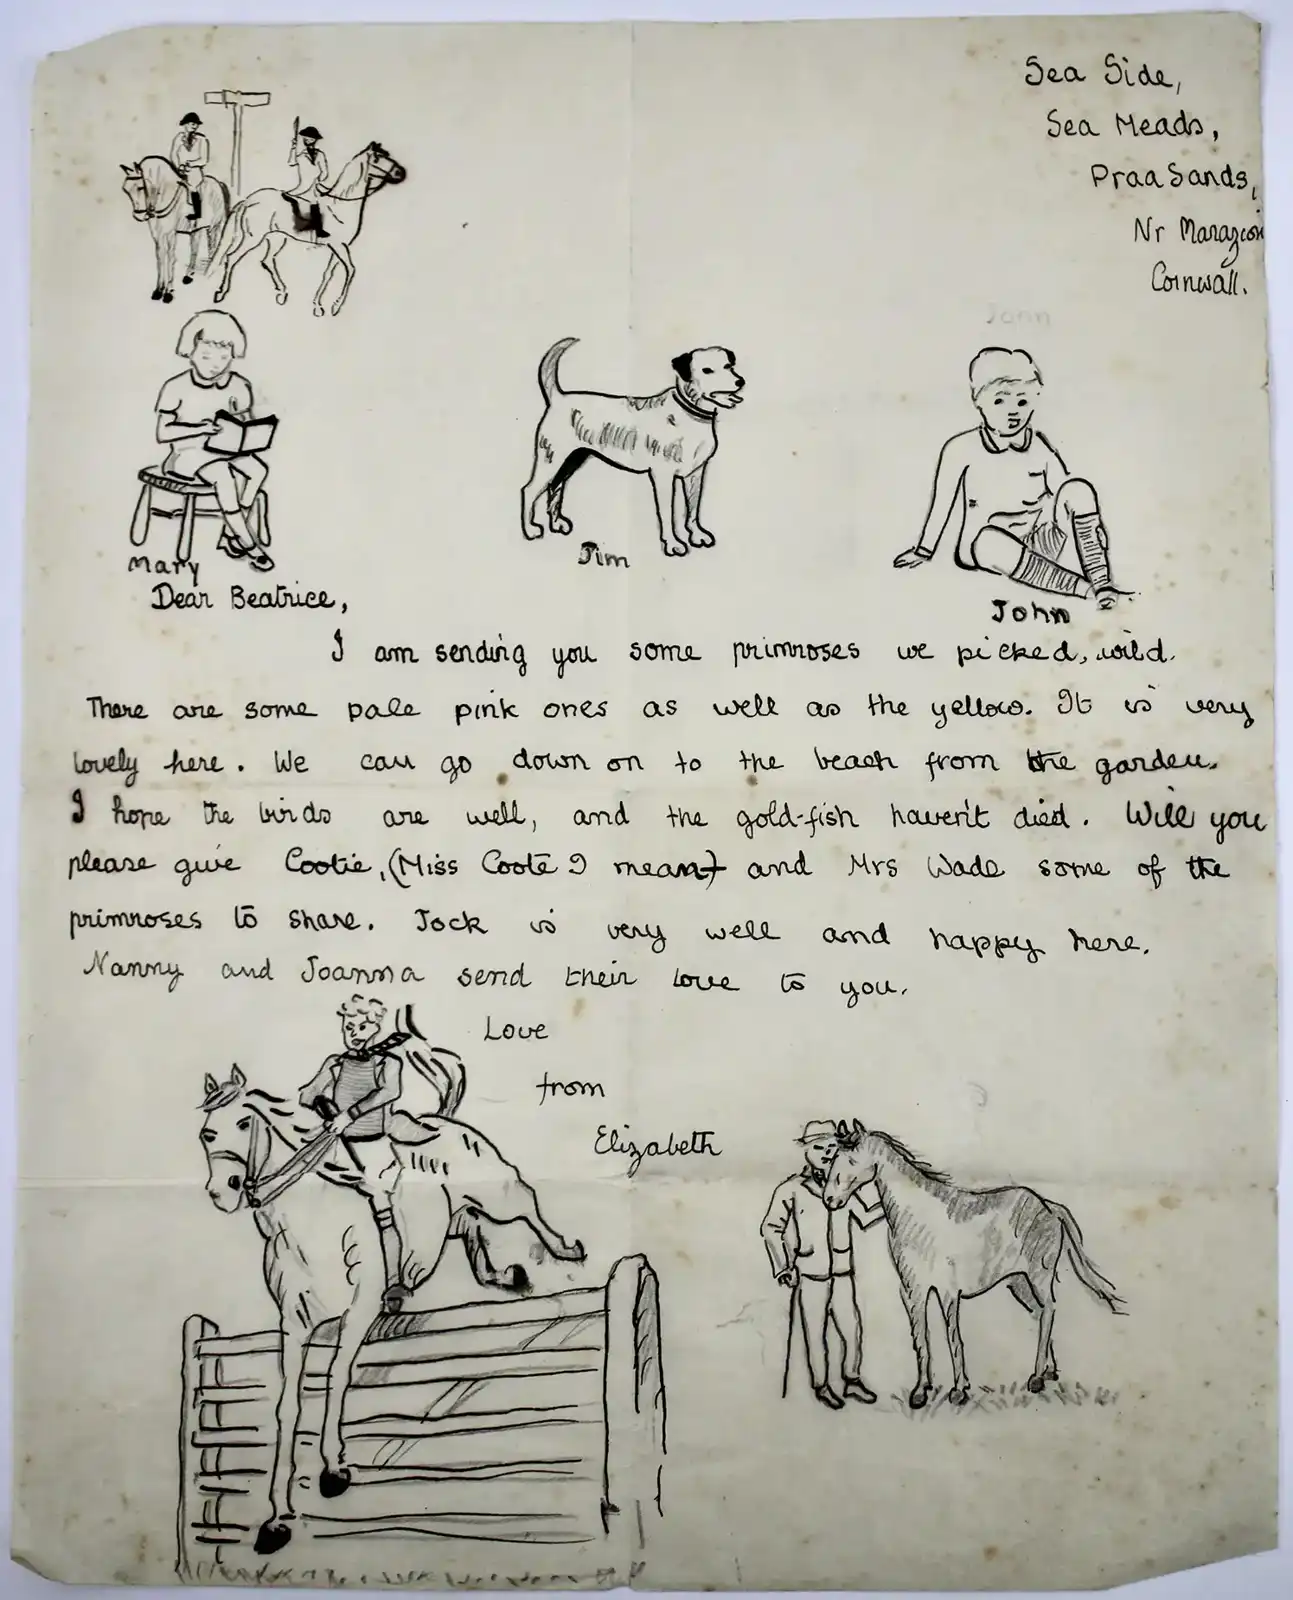 Sea Side,
Sea Meads,
Praa Sands,
Nr Marazion
Cornwall.
John
Mary
Jim
John
Dear Beatrice,
I am sending you some primroses we picked, wild.
There are some pale pink ones as well as the yellow. It is very
lovely here. We can go down on to the beach from the garden.
I hope the birds are well, and the gold-fish haven't died. Will you
please give Cootie, (Miss Coote I mean) and Mrs Wade some of the
primroses to share. Jock is very well and happy here.
Nanny and Joanna send their love to you.
Love
from
Elizabeth